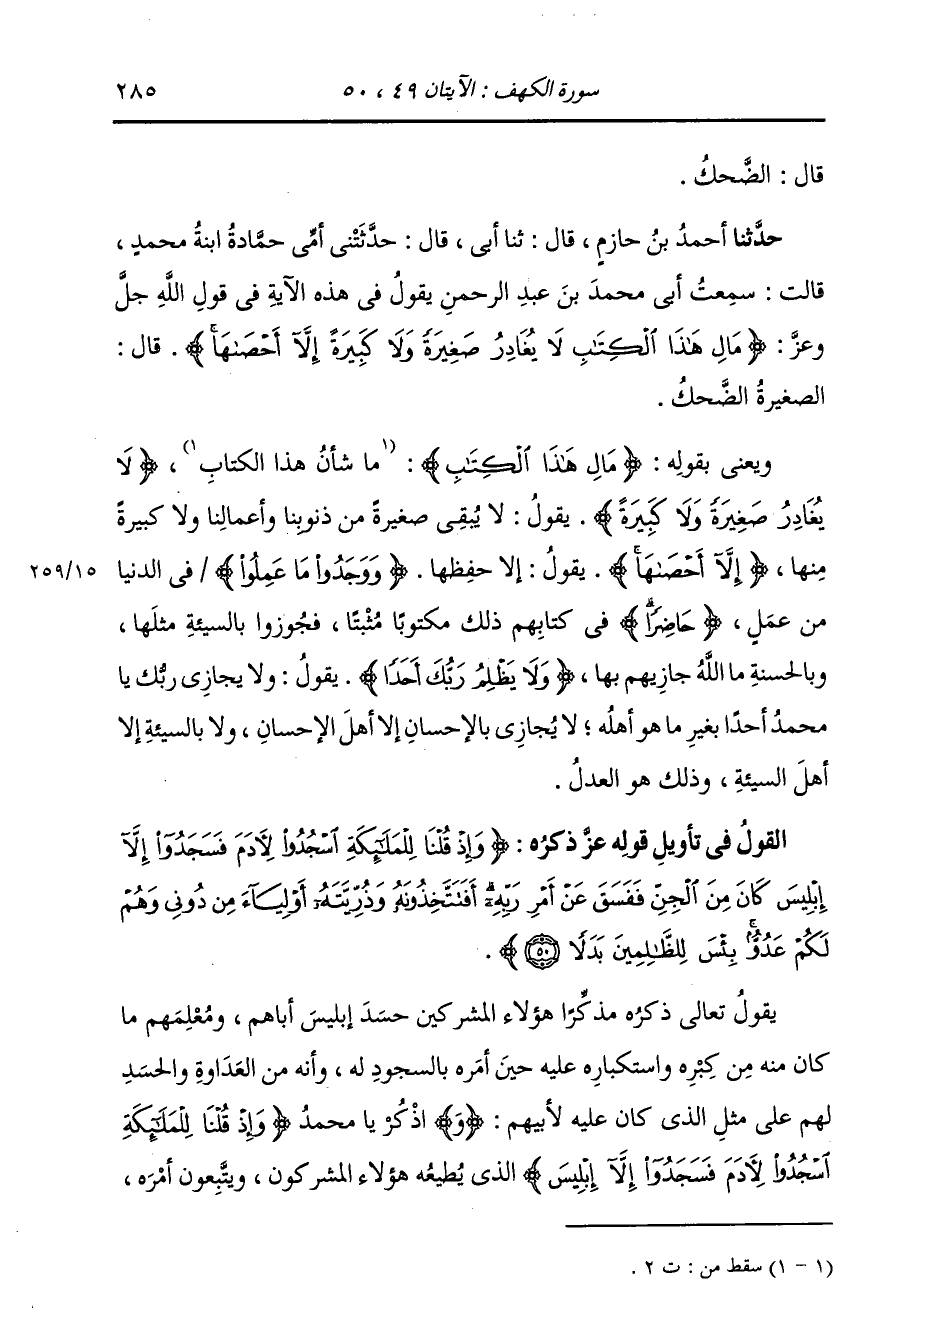 سورة الكهف : الآيتان ٤٩ ، ٥٠ ٢٨٥
قال : الضَّحكُ .
حدَّثنا أحمدُ بنُ حازمٍ ، قال : ثنا أبى ، قال : حدَّثَتْنى أمِّى حمَّادةُ ابنةُ محمدٍ ،
قالت : سمِعتُ أبى محمدَ بنَ عبدِ الرحمنِ يقولُ فى هذه الآيةِ فى قولِ اللَّهِ جلَّ
وعزَّ : ﴿ مَالِ هَٰذَا ٱلْكِتَٰبِ لَا يُغَادِرُ صَغِيرَةً وَلَا كَبِيرَةً إِلَّآ أَحْصَىٰهَاۚ ﴾ . قال :
الصغيرةُ الضَّحكُ .
ويعنى بقولِه : ﴿ مَالِ هَٰذَا ٱلْكِتَٰبِ ﴾ : (١ ما شأنُ هذا الكتابِ ١) ، ﴿ لَا
يُغَادِرُ صَغِيرَةً وَلَا كَبِيرَةً ﴾ . يقولُ : لا يُبقِى صغيرةً من ذنوبِنا وأعمالِنا ولا كبيرةً
مِنها ، ﴿ إِلَّآ أَحْصَىٰهَاۚ ﴾ . يقولُ : إلا حفِظها . ﴿ وَوَجَدُواْ مَا عَمِلُواْ ﴾ / فى الدنيا ٢٥٩/١٥
من عمَلٍ ، ﴿ حَاضِرًاۗ ﴾ فى كتابِهم ذلك مكتوبًا مُثْبتًا ، فجُوزوا بالسيئةِ مثلَها ،
وبالحسنةِ ما اللَّهُ جازِيهم بها ، ﴿ وَلَا يَظْلِمُ رَبُّكَ أَحَدًا ﴾ . يقولُ : ولا يجازِى ربُّك يا
محمدُ أحدًا بغيرِ ما هو أهلُه ؛ لا يُجازِى بالإحسانِ إلا أهلَ الإحسانِ ، ولا بالسيئةِ إلا
أهلَ السيئةِ ، وذلك هو العدلُ .
القولُ فى تأويلِ قولِه عزَّ ذكرُه : ﴿ وَإِذْ قُلْنَا لِلْمَلَٰٓئِكَةِ ٱسْجُدُواْ لِأَدَمَ فَسَجَدُوٓاْ إِلَّآ
إِبْلِيسَ كَانَ مِنَ ٱلْجِنِّ فَفَسَقَ عَنْ أَمْرِ رَبِّهِۦٓۗ أَفَتَتَّخِذُونَهُۥ وَذُرِّيَّتَهُۥٓ أَوْلِيَآءَ مِن دُونِى وَهُمْ
لَكُمْ عَدُوُّۢۚ بِئْسَ لِلظَّٰلِمِينَ بَدَلًا ٥٠ ﴾ .
يقولُ تعالى ذكرُه مذكِّرًا هؤلاء المشركين حسَدَ إبليسَ أباهم ، ومُعْلِمَهم ما
كان منه مِن كِبْرِه واستكبارِه عليه حينَ أمَره بالسجودِ له ، وأنه من العَدَاوةِ والحسَدِ
لهم على مثلِ الذى كان عليه لأبيهم : ﴿وَ﴾ اذْكُرْ يا محمدُ ﴿ وَإِذْ قُلْنَا لِلْمَلَٰٓئِكَةِ
ٱسْجُدُواْ لِأَدَمَ فَسَجَدُوٓاْ إِلَّآ إِبْلِيسَ ﴾ الذى يُطيعُه هؤلاء المشركون ، ويتَّبِعون أمْرَه ،
(١ - ١) سقط من : ت ٢ .